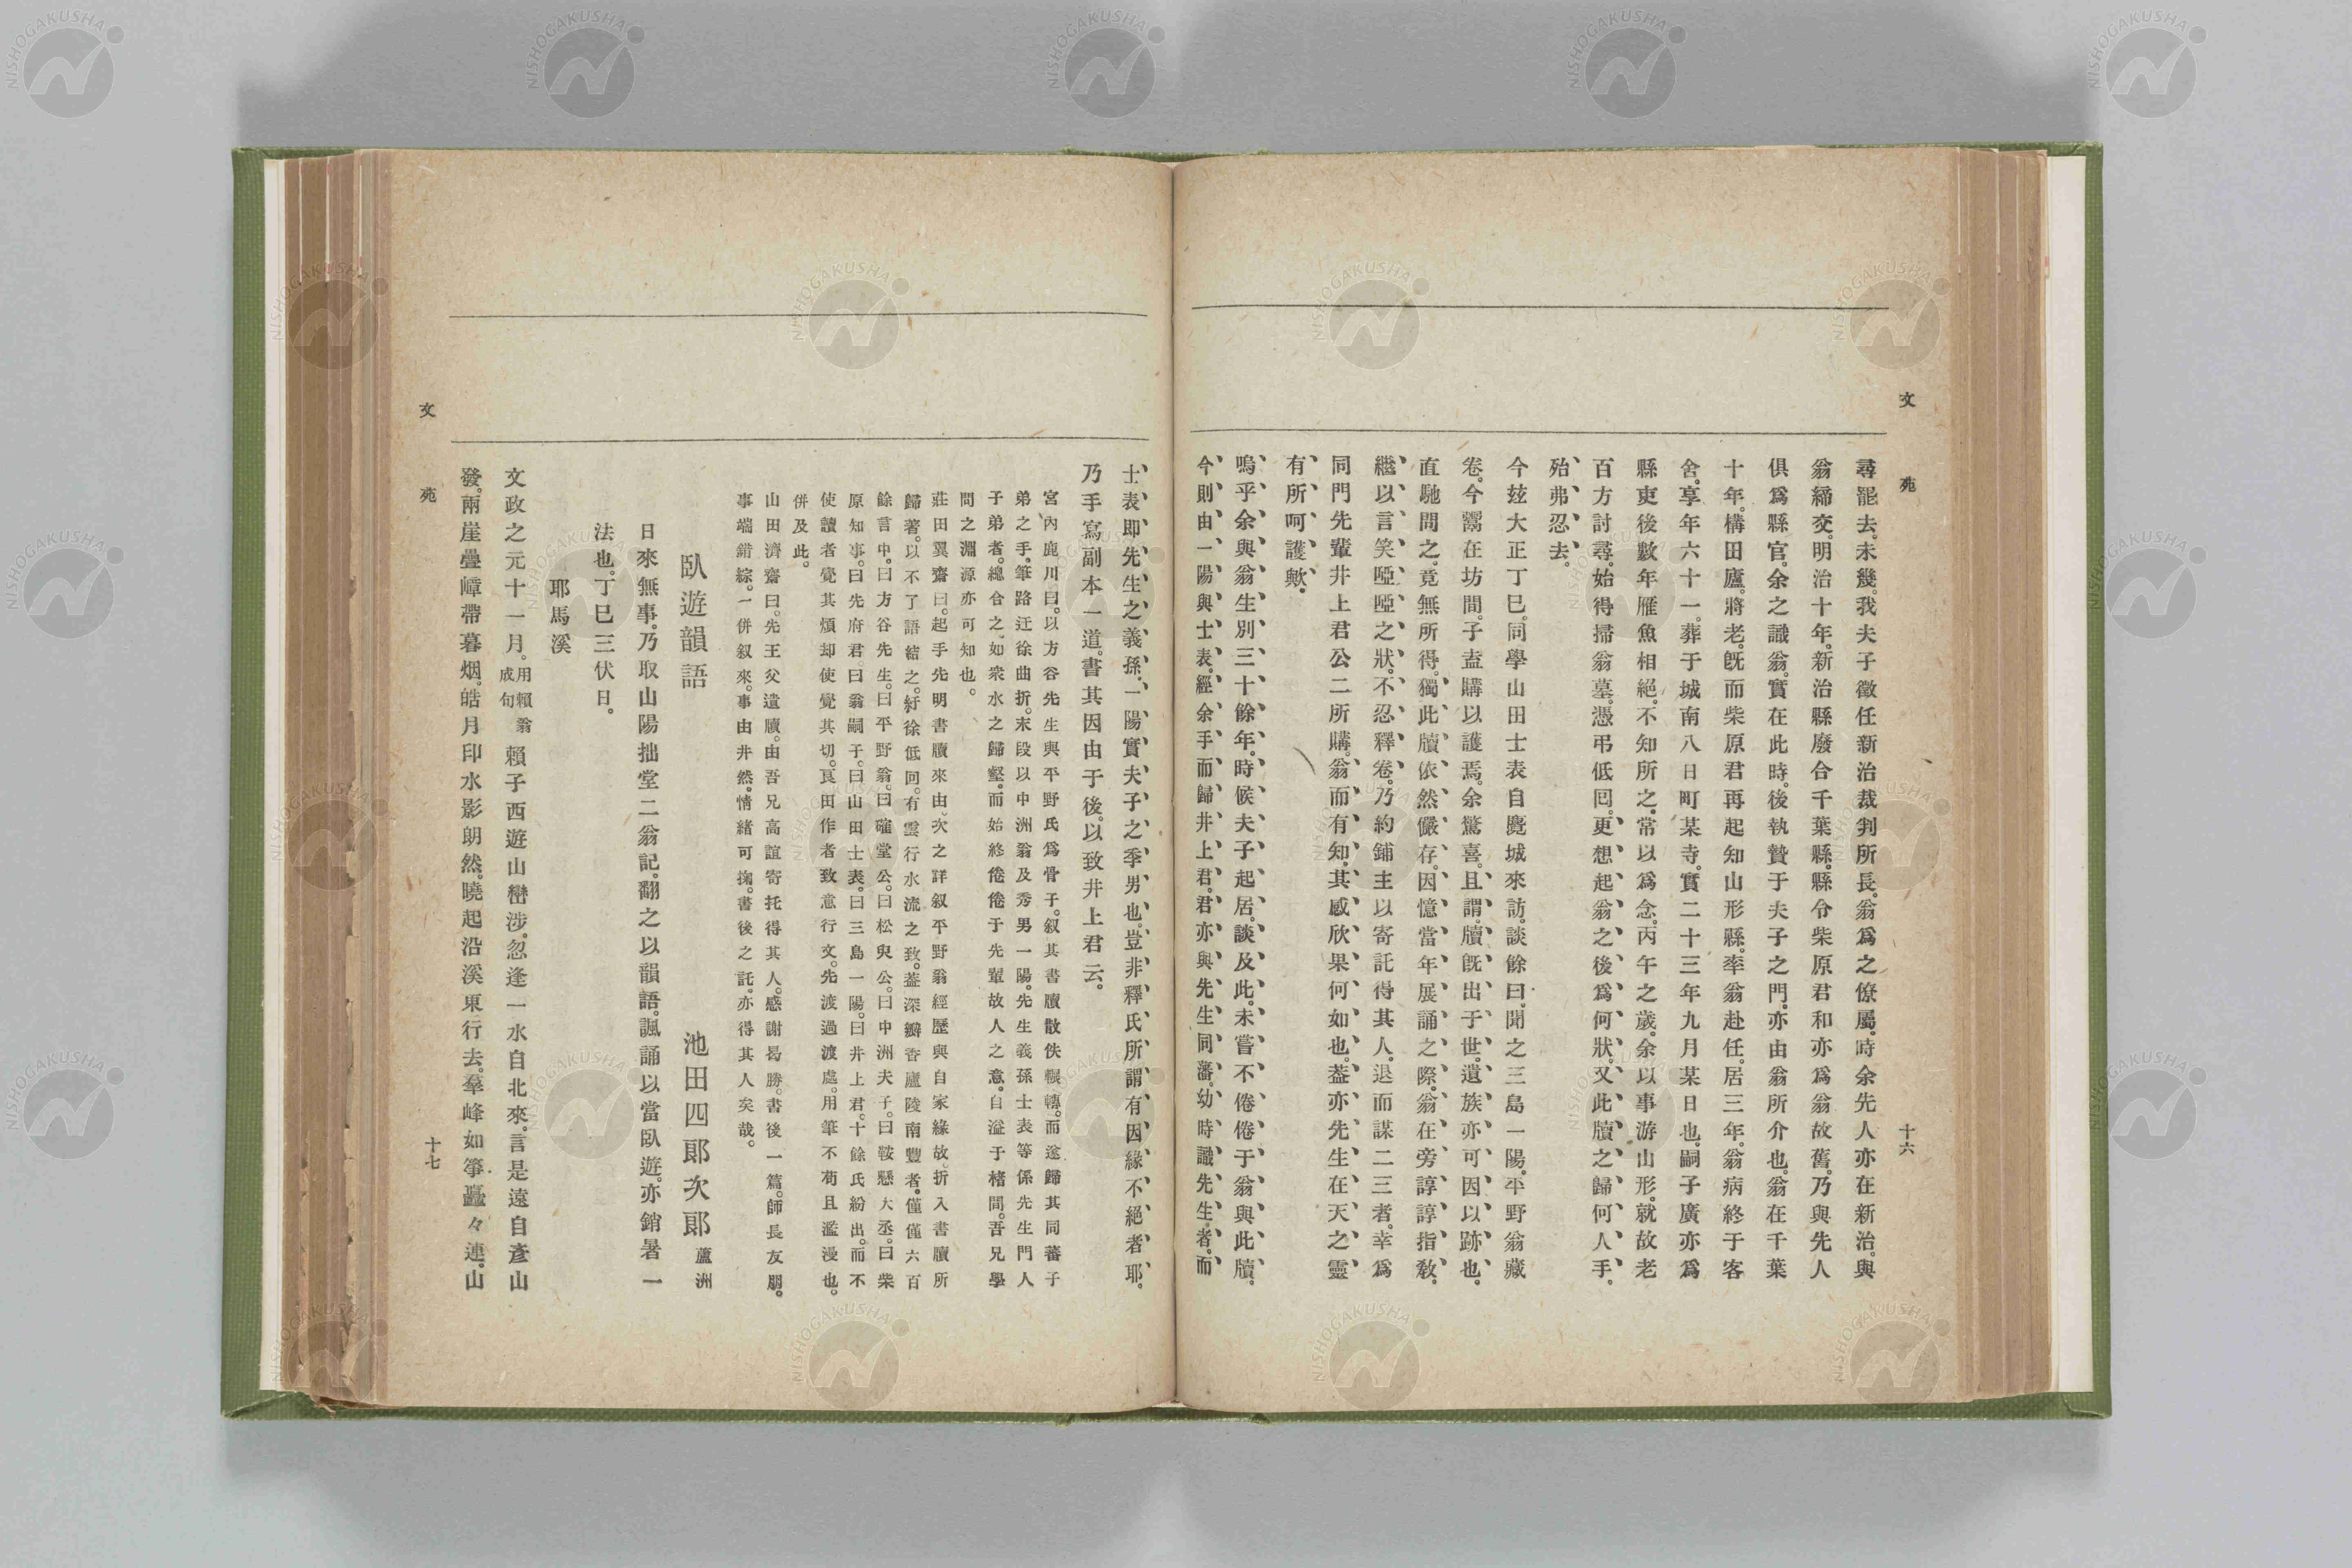 文苑
十六
尋罷去。未幾。我夫子徵任新治裁判所長。翁爲之僚屬。時余先人亦在新治。與
翁締交。明治十年。新治縣廢合千葉縣。縣令柴原君和亦爲翁故舊。乃與先人
俱爲縣官。余之識翁。實在此時。後執贄于夫子之門。亦由翁所介也。翁在千葉
十年。構田廬。將老。旣而柴原君再起知山形縣。率翁赴任。居三年。翁病終于客
舍。享年六十一。葬于城南八日町某寺。實二十三年九月某日也。嗣子廣亦爲
縣吏後數年雁魚相絕。不知所之。常以爲念。丙午之歲。余以事游山形。就故老
百方討尋。始得掃翁墓。憑弔低回。更想起翁之後爲何狀。又此牘之歸何人手。
殆弗忍去。
今玆大正丁巳。同學山田士表自麑城來訪。談餘曰。聞之三島一陽。平野翁藏
卷。今鬻在坊間。子盍購以護焉。余驚喜。且謂。牘旣出于世。遺族亦可因以跡也。
直馳問之。竟無所得。獨此牘依然儼存。因憶當年展誦之際。翁在旁諄諄指敎。
繼以言笑啞啞之狀。不忍釋卷。乃約鋪主以寄託得其人。退而謀二三者。幸爲
同門先輩井上君公二所購。翁而有知。其感欣果何如也。葢亦先生在天之靈
有所呵護歟。
嗚乎余與翁生別三十餘年。時候夫子起居。談及此。未嘗不倦倦于翁與此牘。
今則由一陽與士表。經余手而歸井上君。君亦與先生同藩。幼時識先生者。而
士表卽先生之義孫。一陽實夫子之季男也。豈非釋氏所謂有因緣不絕者耶。
乃手寫副本一道。書其因由于後。以致井上君云。
宮內鹿川曰。以方谷先生與平野氏爲骨子。叙其書牘散佚輾轉。而遂歸其同藩子
弟之手。筆路迂徐曲折。末段以中洲翁及秀男一陽。先生義孫士表等係先生門人
子弟者。總合之。如衆水之歸壑。而始終倦倦于先輩故人之意。自溢于楮間。吾兄學
問之淵源亦可知也。
莊田翼齋曰。起手先明書牘來由。次之詳叙平野翁經歷與自家緣故。折入書牘所
歸著。以不了語結之。紆徐低回。有雲行水流之致。葢深瓣香廬陵南豐者。僅僅六百
餘言中。曰方谷先生。曰平野翁。曰確堂公。曰松叟公。曰中洲夫子。曰鞍懸大丞。曰柴
原知事。曰先府君。曰翁嗣子。曰山田士表。曰三島一陽。曰井上君。十餘氏紛出。而不
使讀者覺其煩却使覺其切。莨田作者致意行文。先渡過渡處。用筆不苟且濫漫也。
併及此。
山田濟齋曰。先王父遺牘。由吾兄高誼寄托得其人。感謝曷勝。書後一篇。師長友朋。
事端錯綜。一併叙來。事由井然。情緖可掬。書後之託。亦得其人矣哉。
臥遊韻語
池田四郎次郎 蘆洲
日來無事。乃取山陽拙堂二翁記。翻之以韻語。諷誦以當臥遊。亦銷暑一
法也。丁巳三伏日。
耶馬溪
文政之元十一月。用賴翁成句 賴子西遊山巒涉。忽逢一水自北來。言是遠自彥山
發。兩崖疊嶂帶暮烟。皓月印水影朗然。曉起沿溪東行去。羣峰如筝矗々連。山
文苑
十七